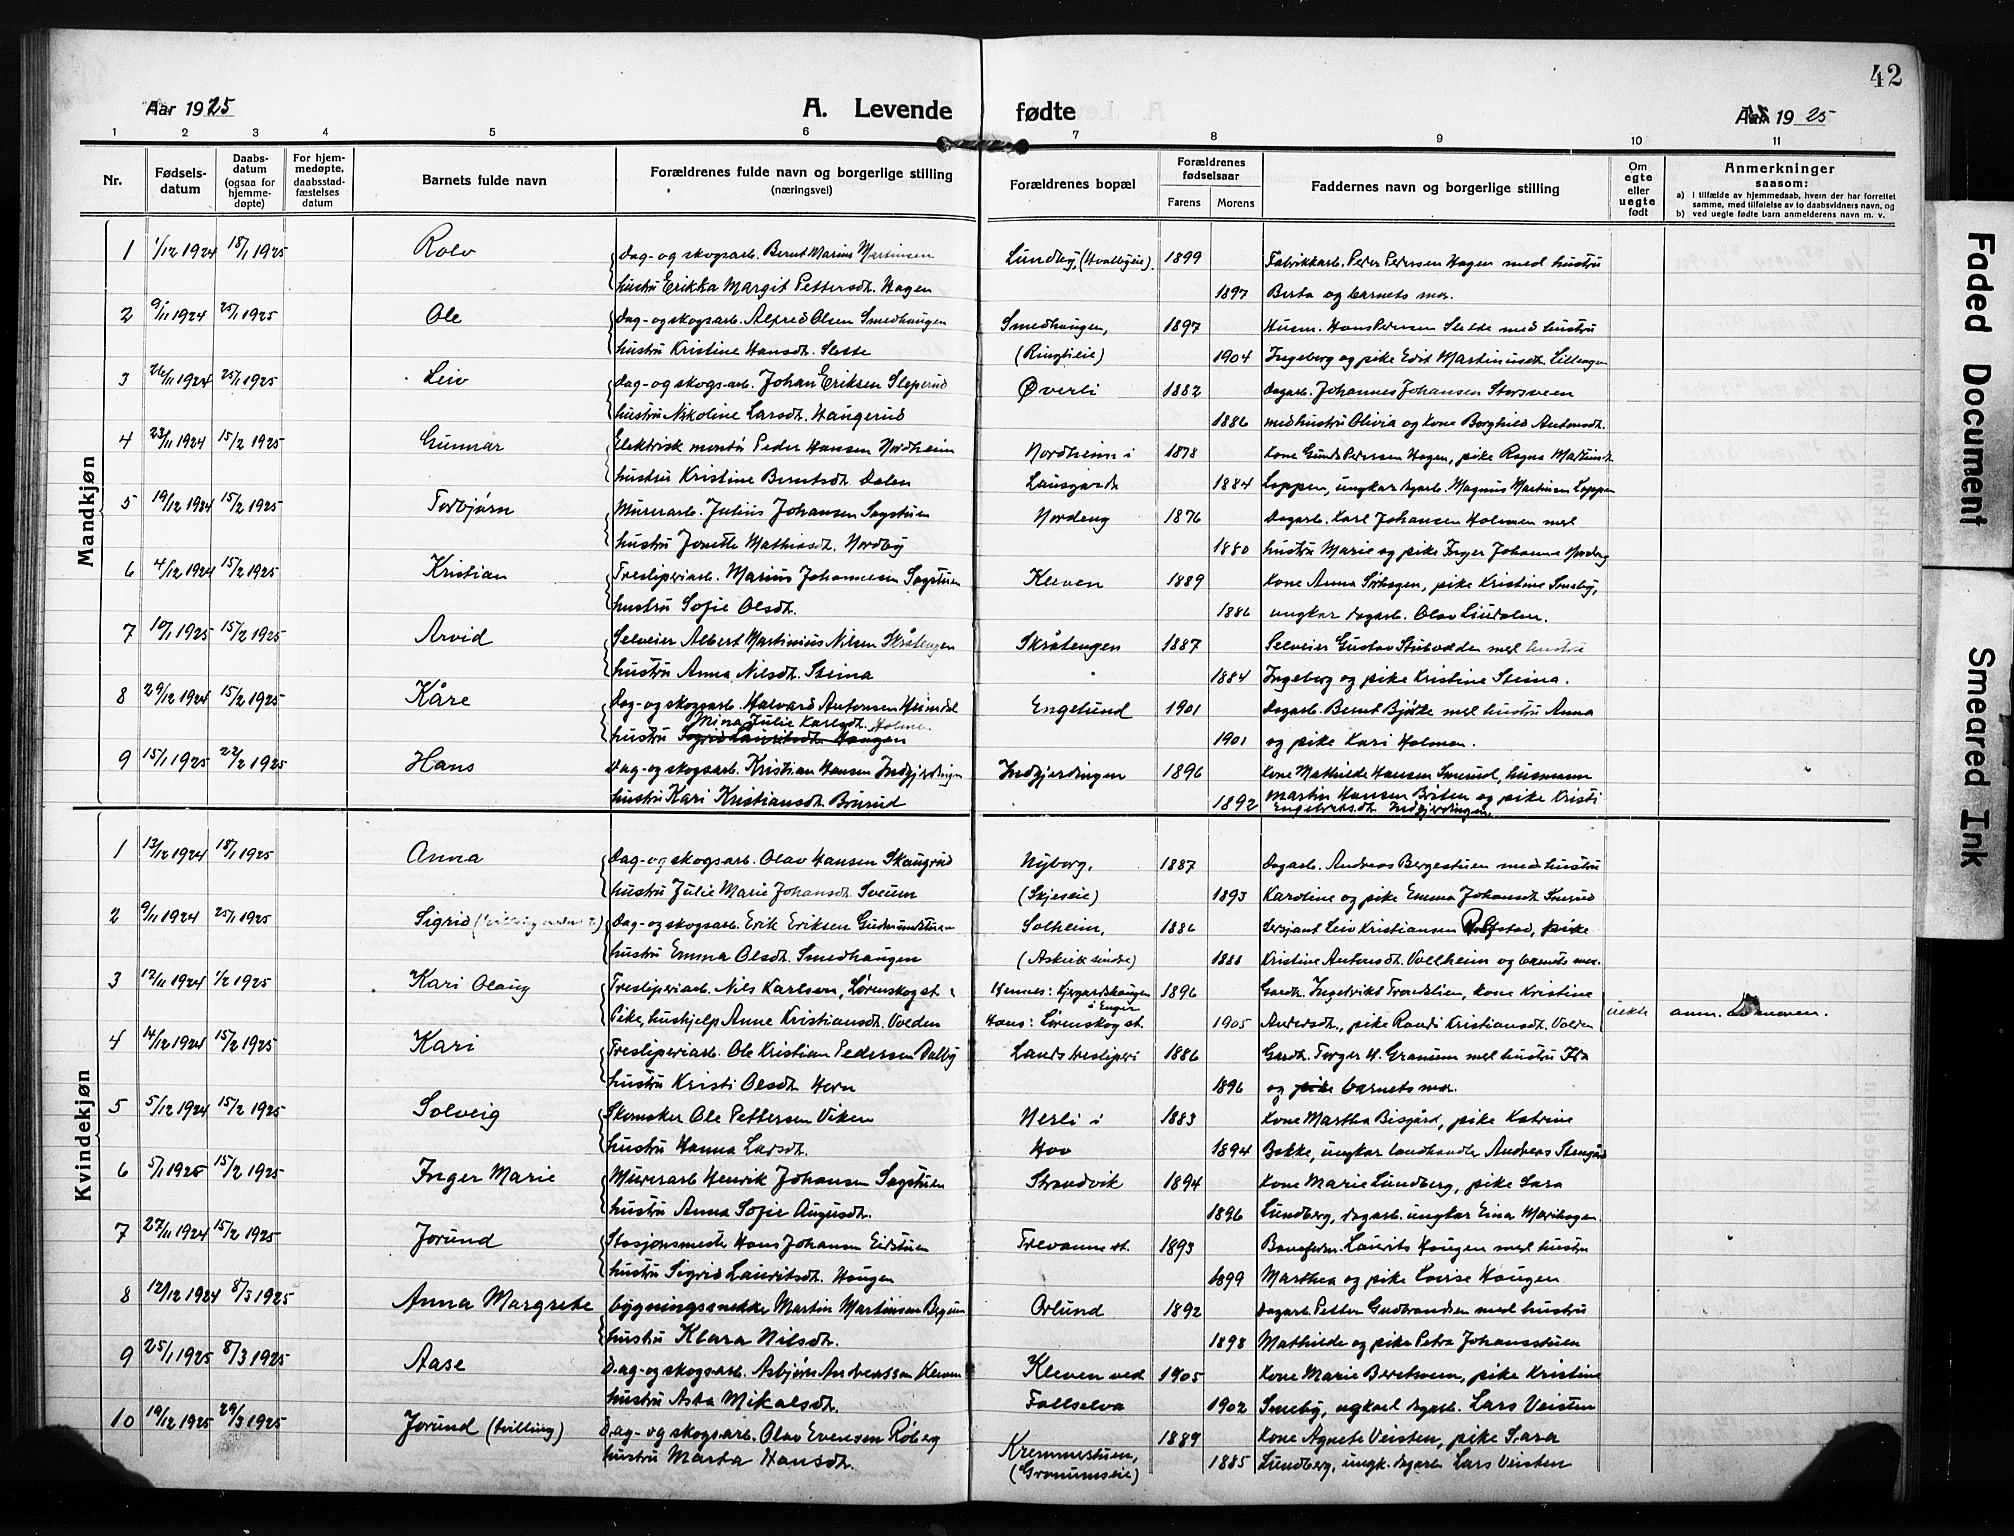 42
Aar 1925 A. Levende fødte Aar 1925
1 2 3 4 5 6 7 8 9 10 11
Nr. Fødselsdatum Daabsdatum (ogsaa for hjemmedøpte) For hjemmedøpte, daabsstadfæstelses datum Barnets fulde navn Forældrenes fulde navn og borgerlige stilling (næringsvei) Forældrenes bopæl Forældrenes fødselsaar Farens Morens Faddernes navn og borgerlige stilling Om egte eller uegte født Anmerkninger saasom:
a) I tilfælde av hjemmedaab, hvem der har forrettet samme, med tilføielse av to daabsvidners navn, og
b) ved uegte fødte barn anmelderens navn m. v.
Mandkjøn
1 1/12 1924 18/1 1925 Rolv Dag- og skogsarb. Bernt Marius Martinsen Lundby, (Hvalbyeie). 1899 Fabrikkarb. Peder Pedersen Hagen med hustru
hustru Erikka Margit Pettersdt. Hagen 1897 Berta og barnets mor.
2 9/11 1924 25/1 1925 Ole Dag- og skogsarb. Alfred Olsen Smedhaugen Smedhaugen, 1897 Husm. Hans Pedersen Slette med hustru
hustru Kristine Hansdt. Slette (Ringlieie) 1904 Ingeborg og pike Edit Martinusdt. Lillengen
3 26/11 1924 25/1 1925 Leiv Dag- og skogsarb. Johan Eriksen Sleperud Øverli 1882 Dagarb. Johannes Johansen Storsveen
hustru Nikoline Larsdt. Haugerud 1886 med hustru Olivia og kone Borghild Antonsdt.
4 23/11 1924 15/2 1925 Gunnar Elektrisk montør Peder Hansen Nordheim Nordheim i 1878 Kone Gunda Pedersen Hagen, pike Ragna Martinsdt.
hustru Kristine Berntsdt. Dalen Lausgarda 1884 Loppen, ungkar dagarb. Magnus Martinsen Loppen
5 19/12 1924 15/2 1925 Torbjørn Murerarb. Julius Johansen Sagstuen Nordeng 1876 Dagarb. Karl Johansen Holmen med
hustru Jonette Mathiasdt. Nordby 1880 hustru Marie og pike Inger Johanne Nordeng
6 4/12 1924 15/2 1925 Kristian Tresliperiarb. Marius Johannesen Sagstuen Kleven 1889 Kone Anna Sørhagen, pike Kristine Smeby,
hustru Sofie Olsdt. 1886 ungkar dagarb. Olav Lindalen.
7 10/1 1925 15/2 1925 Arvid Selveier Albert Martinius Nilsen Skråtengen Skråtengen 1887 Selveier Gustav Stubødden med hustru
hustru Anna Nilsdt. Steina 1884 Ingeborg og pike Kristine Steina.
8 29/12 1924 15/2 1925 Kåre Dag- og skogsarb. Halvard Antonsen Heimdal Engelund 1901 Dagarb. Bernt Bjørke med hustru Anna
Mina Julie Karlsdt. Holmen
hustru Sigrid Lauritsdt. Haugen 1901 og pike Kari Holmen.
9 15/1 1925 22/2 1925 Hans Dag- og skogsarb. Kristian Hansen Indgjerdingen Indgjerdingen 1896 Kone Mathilde Hansen Smerud, husmann
hustru Kari Kristiansdt. Brurud 1892 Martin Hansen Bråten og pike Kristi
Engebretsdt. Indgjerdingen.
Kvindekjøn
1 13/12 1924 18/1 1925 Anna Dag- og skogsarb. Olav Hansen Skaugrud Nyborg, 1887 Dagarb. Andreas Bergestuen med hustru
hustru Julie Marie Johansdt. Sveum (Skjeseie) 1893 Karoline og pike Emma Johansdt. Smerud
2 9/11 1924 25/1 1925 Sigrid Dag- og skogsarb. Erik Eriksen Gudmundstuen Solheim, 1886 Sersjant Leiv Kristiansen Rolfstad, pike
hustru Emma Olsdt. Smedhaugen 1888 Kristine Antonsdt. Vollheim og barnets mor.
3 12/11 1924 1/2 1925 Kari Olaug Tresliperiarb. Nils Karlsen, Lørenskog st. Hennes: Kjergardshaugen 1896 Gardbr. Ingebrikt Trondslien, kone Kristine
i Enger
Pike, hushjelp Anne Kristiansdt. Volden Hans: Lørenskog st. 1905 Andersdt., pike Randi Kristiansdt. Volden uekte anm.
4 14/12 1924 15/2 1925 Kari Tresliperiarb. Ole Kristian Pedersen Dalby Lands tresliperi 1886 Gardbr. Torger H. Granum med hustru Ida
hustru Kristi Olsdt. Horn 1896 og pike barnets mor.
5 5/12 1924 15/2 1925 Solveig Skomaker Ole Pettersen Viken Nerli i 1883 Kone Martha Bisgård, pike Katrine
hustru Hanna Larsdt. Hov 1894 Bakke, ungkar landhandler Andreas Stengård
6 5/1 1925 15/2 1925 Inger Marie Murerarb Henrik Johansen Sagstuen Strandvik 1894 Kone Marie Lundberg, pike Sara
hustru Anna Sofie Augustdt. 1896 Lundberg, dagarb. ungkar Einar Marihagen
7 27/11 1924 15/2 1925 Jorund Stasjonsmester Hans Johansen Eidstuen Trevannet. 1893 Baneform. Laurits Haugen med hustru
hustru Sigrid Lauritsdt. Haugen 1899 Marthea og pike Lovise Haugen
8 12/12 1924 8/3 1925 Anna Margrete bygningssnekker Martin Martinsen Bygum Orlund 1892 Dagarb. Petter Gudbrandsen med hustru
hustru Klara Nilsdt. 1898 Mathilde og pike Petra Johansstuen
9 25/1 1925 8/3 1925 Aase Dag- og skogsarb. Asbjørn Andreassen Kleven Kleven ved 1905 Kone Marie Beretsveen, pike Kristine
hustru Asta Mikalsdt. Fallselva 1902 Smeby, ugkarl dagarb. Lars Veisten
10 19/12 1925 29/3 1925 Jorund (tvilling) Dag- og skogsarb. Olav Evensen Røberg Kremmestuen, 1889 Kone Agnete Veisten, pike Sara
hustru Marta Hansdt. (Granumseie) 1885 Lundberg, ungk. dagarb Lars Veisten
Faded Document
Smeared Ink